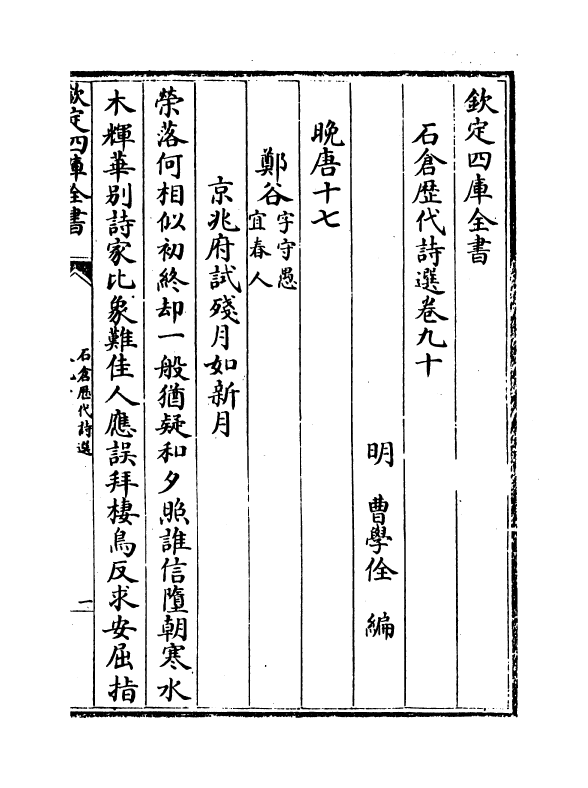 欽定四庫全書
石倉歷代詩選卷九十
明 曹學佺 編
晚唐十七
鄭谷字守愚宜春人
京兆府試殘月如新月
榮落何相似初終却一般猶疑和夕照誰信墮朝寒水
木輝華别詩家比象難佳人應誤拜棲鳥反求安屈指
欽定四庫全書
石倉歷代詩選
一